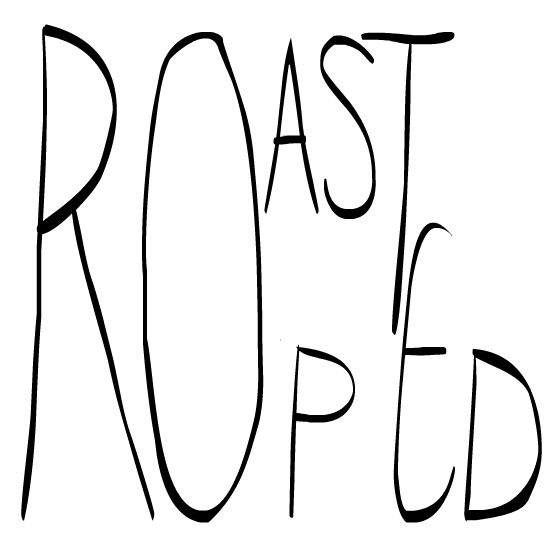 ROAST
PED